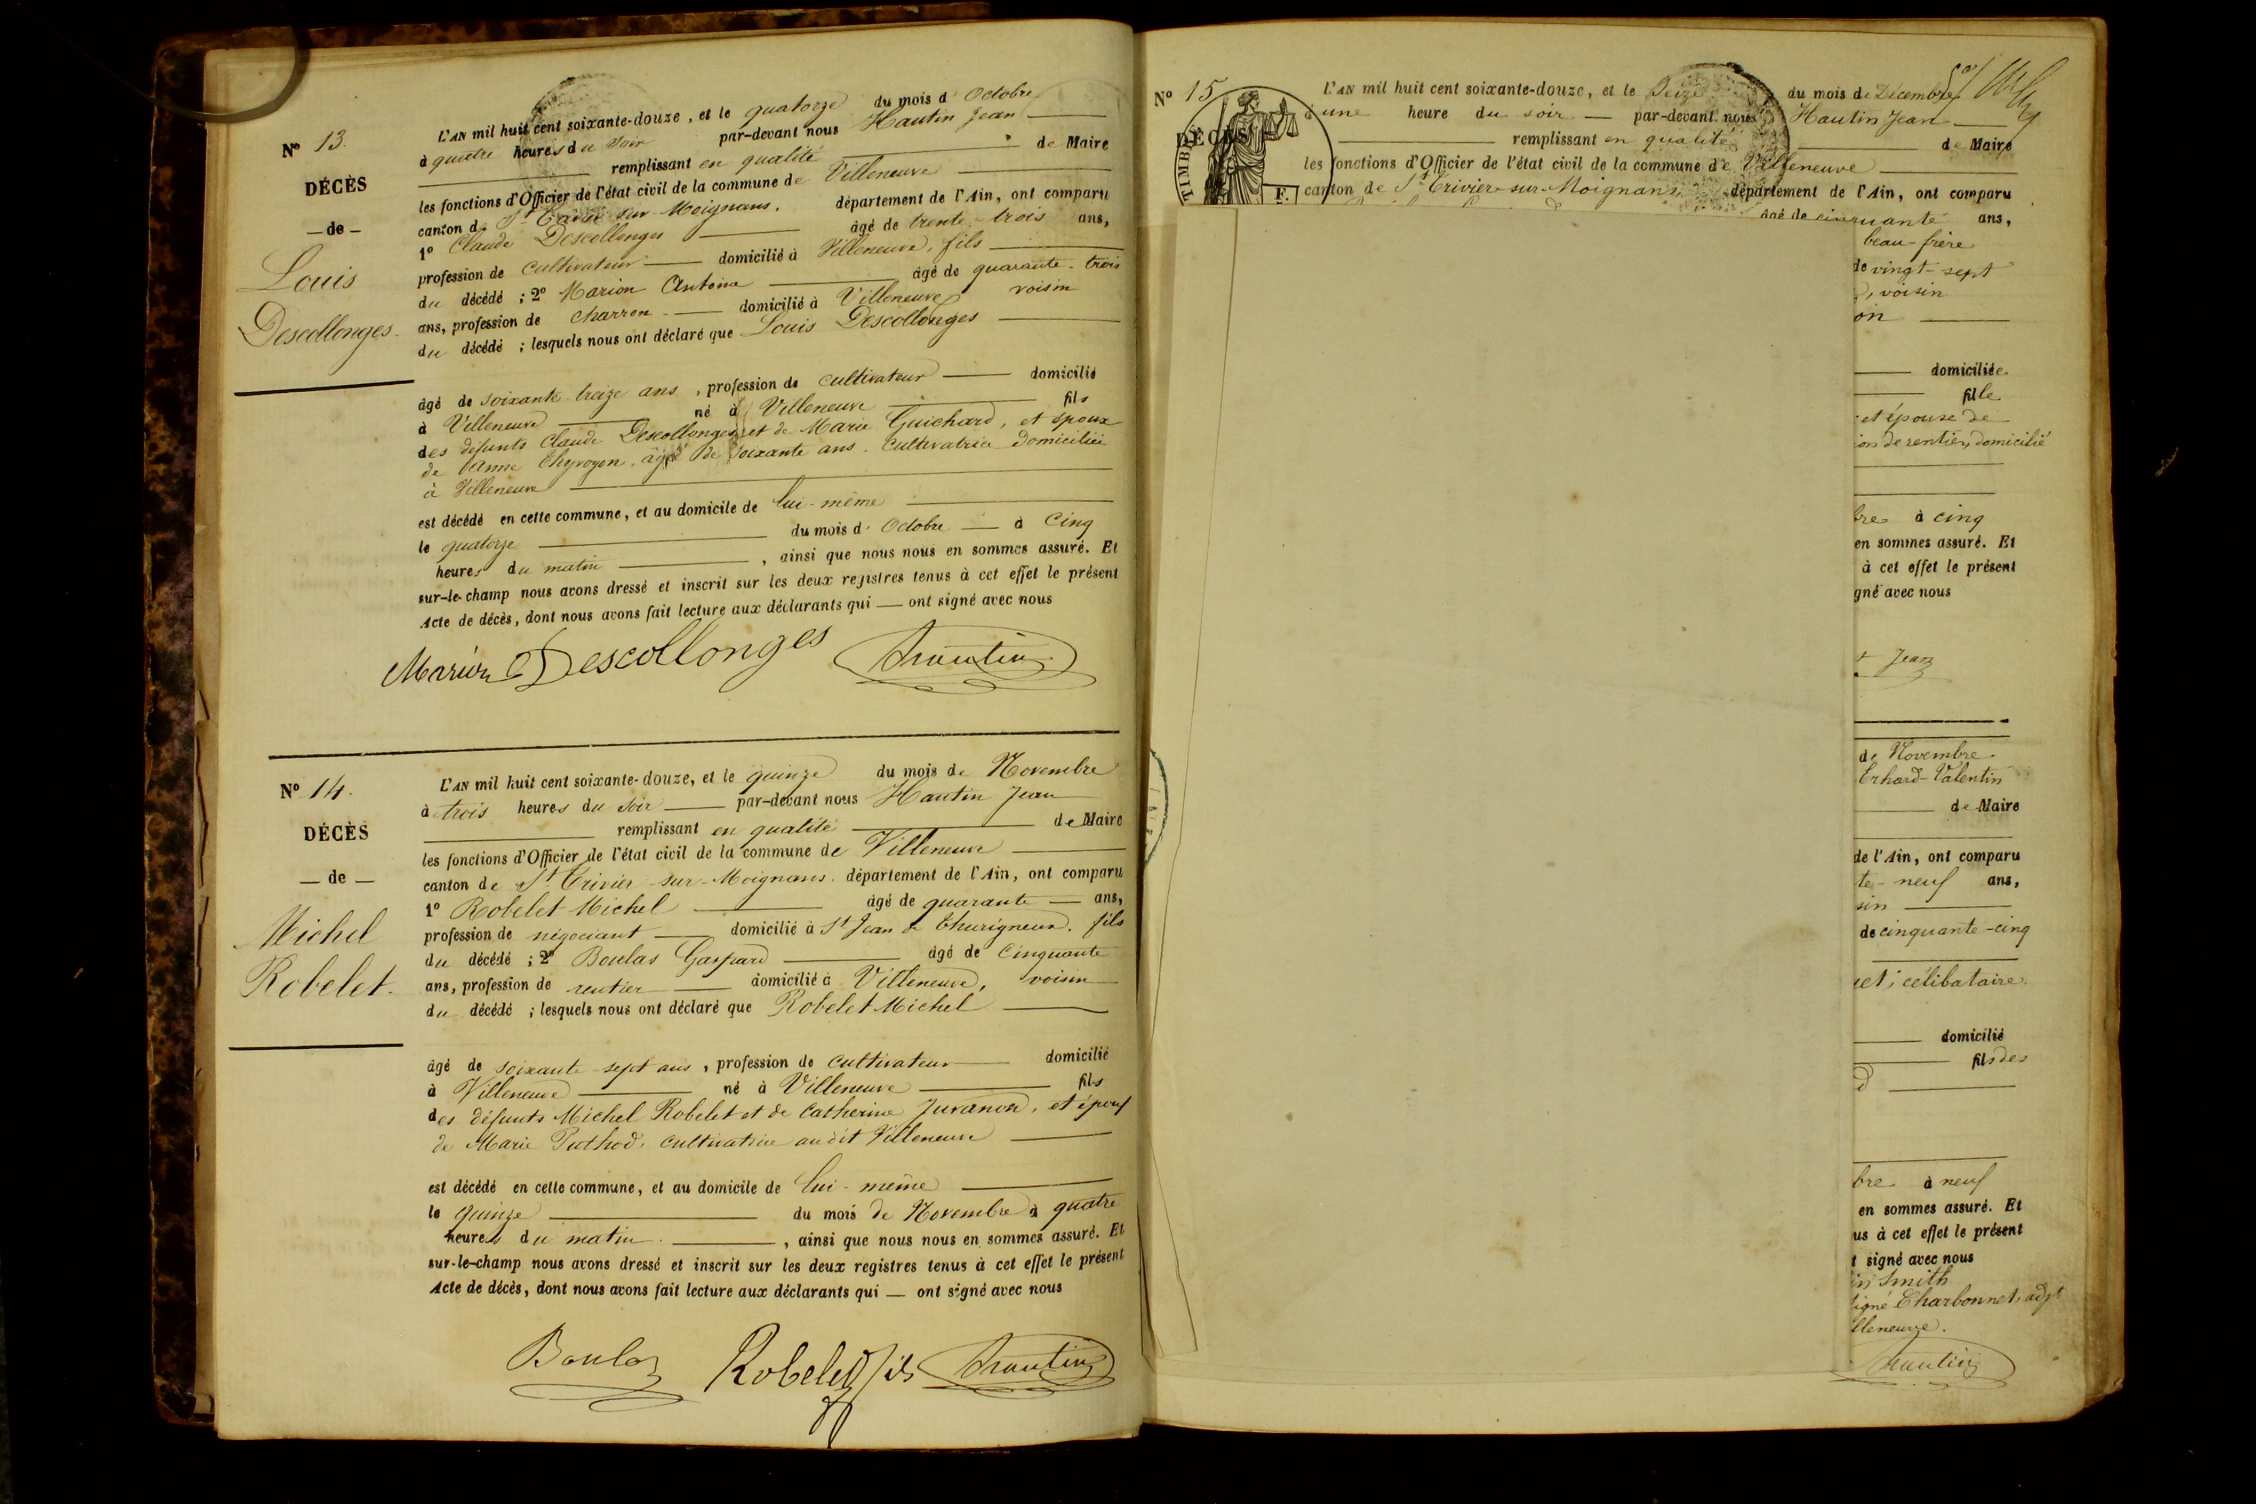 N° 13.
DÉCÈS
— de —
Louis
Descollonges.
L'AN mil huit cent soixante-douze, et le quatorze du mois d'Octobre
à quatre heures du soir par-devant nous Hautin Jean
remplissant en qualité de Maire
les fonctions d'Officier de l'état civil de la commune de Villeneuve
canton de St Trivier sur Moignans. département de l'Ain, ont comparu
1° Claude Descollonges âgé de trente-trois ans,
profession de cultivateur domicilié à Villeneuve, fils
du décédé ; 2° Marion Antoine âgé de quarante-trois
ans, profession de charron domicilié à Villeneuve, voisin
du décédé ; lesquels nous ont déclaré que Louis Descollonges
âgé de soixante treize ans, profession de cultivateur domicilié
à Villeneuve né à Villeneuve fils
des défunts Claude Descollonges et de Marie Guichard, et époux
de Anne agé de soixante ans, cultivatrice domiciliée
à Villeneuve
est décédé en cette commune, et au domicile de lui-même
le quatorze du mois d'Octobre à cinq
heures du matin, ainsi que nous nous en sommes assuré. Et
sur-le-champ nous avons dressé et inscrit sur les deux registres tenus à cet effet le présent
Acte de décès, dont nous avons fait lecture aux déclarants qui — ont signé avec nous
Marion Descollonges Hautin
N° 14.
DÉCÈS
— de —
Michel
Robelet.
L'AN mil huit cent soixante-douze, et le quinze du mois de Novembre
à trois heures du soir par-devant nous Hautin Jean
remplissant en qualité de Maire
les fonctions d'Officier de l'état civil de la commune de Villeneuve
canton de St Trivier-sur-Moignans. département de l'Ain, ont comparu
1° Robelet Michel âgé de quarante ans,
profession de négociant domicilié à St Jean de Thurigneux, fils
du décédé ; 2° Boulas Gaspard âgé de cinquante
ans, profession de rentier domicilié à Villeneuve, voisin
du décédé ; lesquels nous ont déclaré que Robelet Michel
âgé de soixante-sept ans, profession de cultivateur domicilié
à Villeneuve né à Villeneuve fils
des défunts Michel Robelet et de Catherine Juvanon, et époux
de Marie Puthod, cultivatrice audit Villeneuve
est décédé en cette commune, et au domicile de lui-même
le quinze du mois de Novembre à quatre
heures du matin, ainsi que nous nous en sommes assuré. Et
sur-le-champ nous avons dressé et inscrit sur les deux registres tenus à cet effet le présent
Acte de décès, dont nous avons fait lecture aux déclarants qui — ont signé avec nous
Boulas Robelet fils Hautin
N° 15
DÉCÈS
TIMBR
F.
L'AN mil huit cent soixante-douze, et le Seize du mois de Décembre
à une heure du soir — par-devant nous Hautin Jean
remplissant en qualité de Maire
les fonctions d'Officier de l'état civil de la commune de Villeneuve
canton de St Trivier-sur-Moignans département de l'Ain, ont comparu
âgé de cinquante ans,
beau-frère
de vingt-sept
, voisin
on
domiciliée
fille
et épouse de
ion de rentier, domicilié
bre à cinq
en sommes assuré. Et
à cet effet le présent
gné avec nous
t Jean
de Novembre
Erhard-Valentin
de Maire
de l'Ain, ont comparu
te-neuf ans,
sin
de cinquante-cinq
uet, célibataire.
domicilié
fils des
d
bre à neuf
en sommes assuré. Et
us à cet effet le présent
t signé avec nous
in Smith
signé Charbonnet, adjt
lleneuve.
Hautin